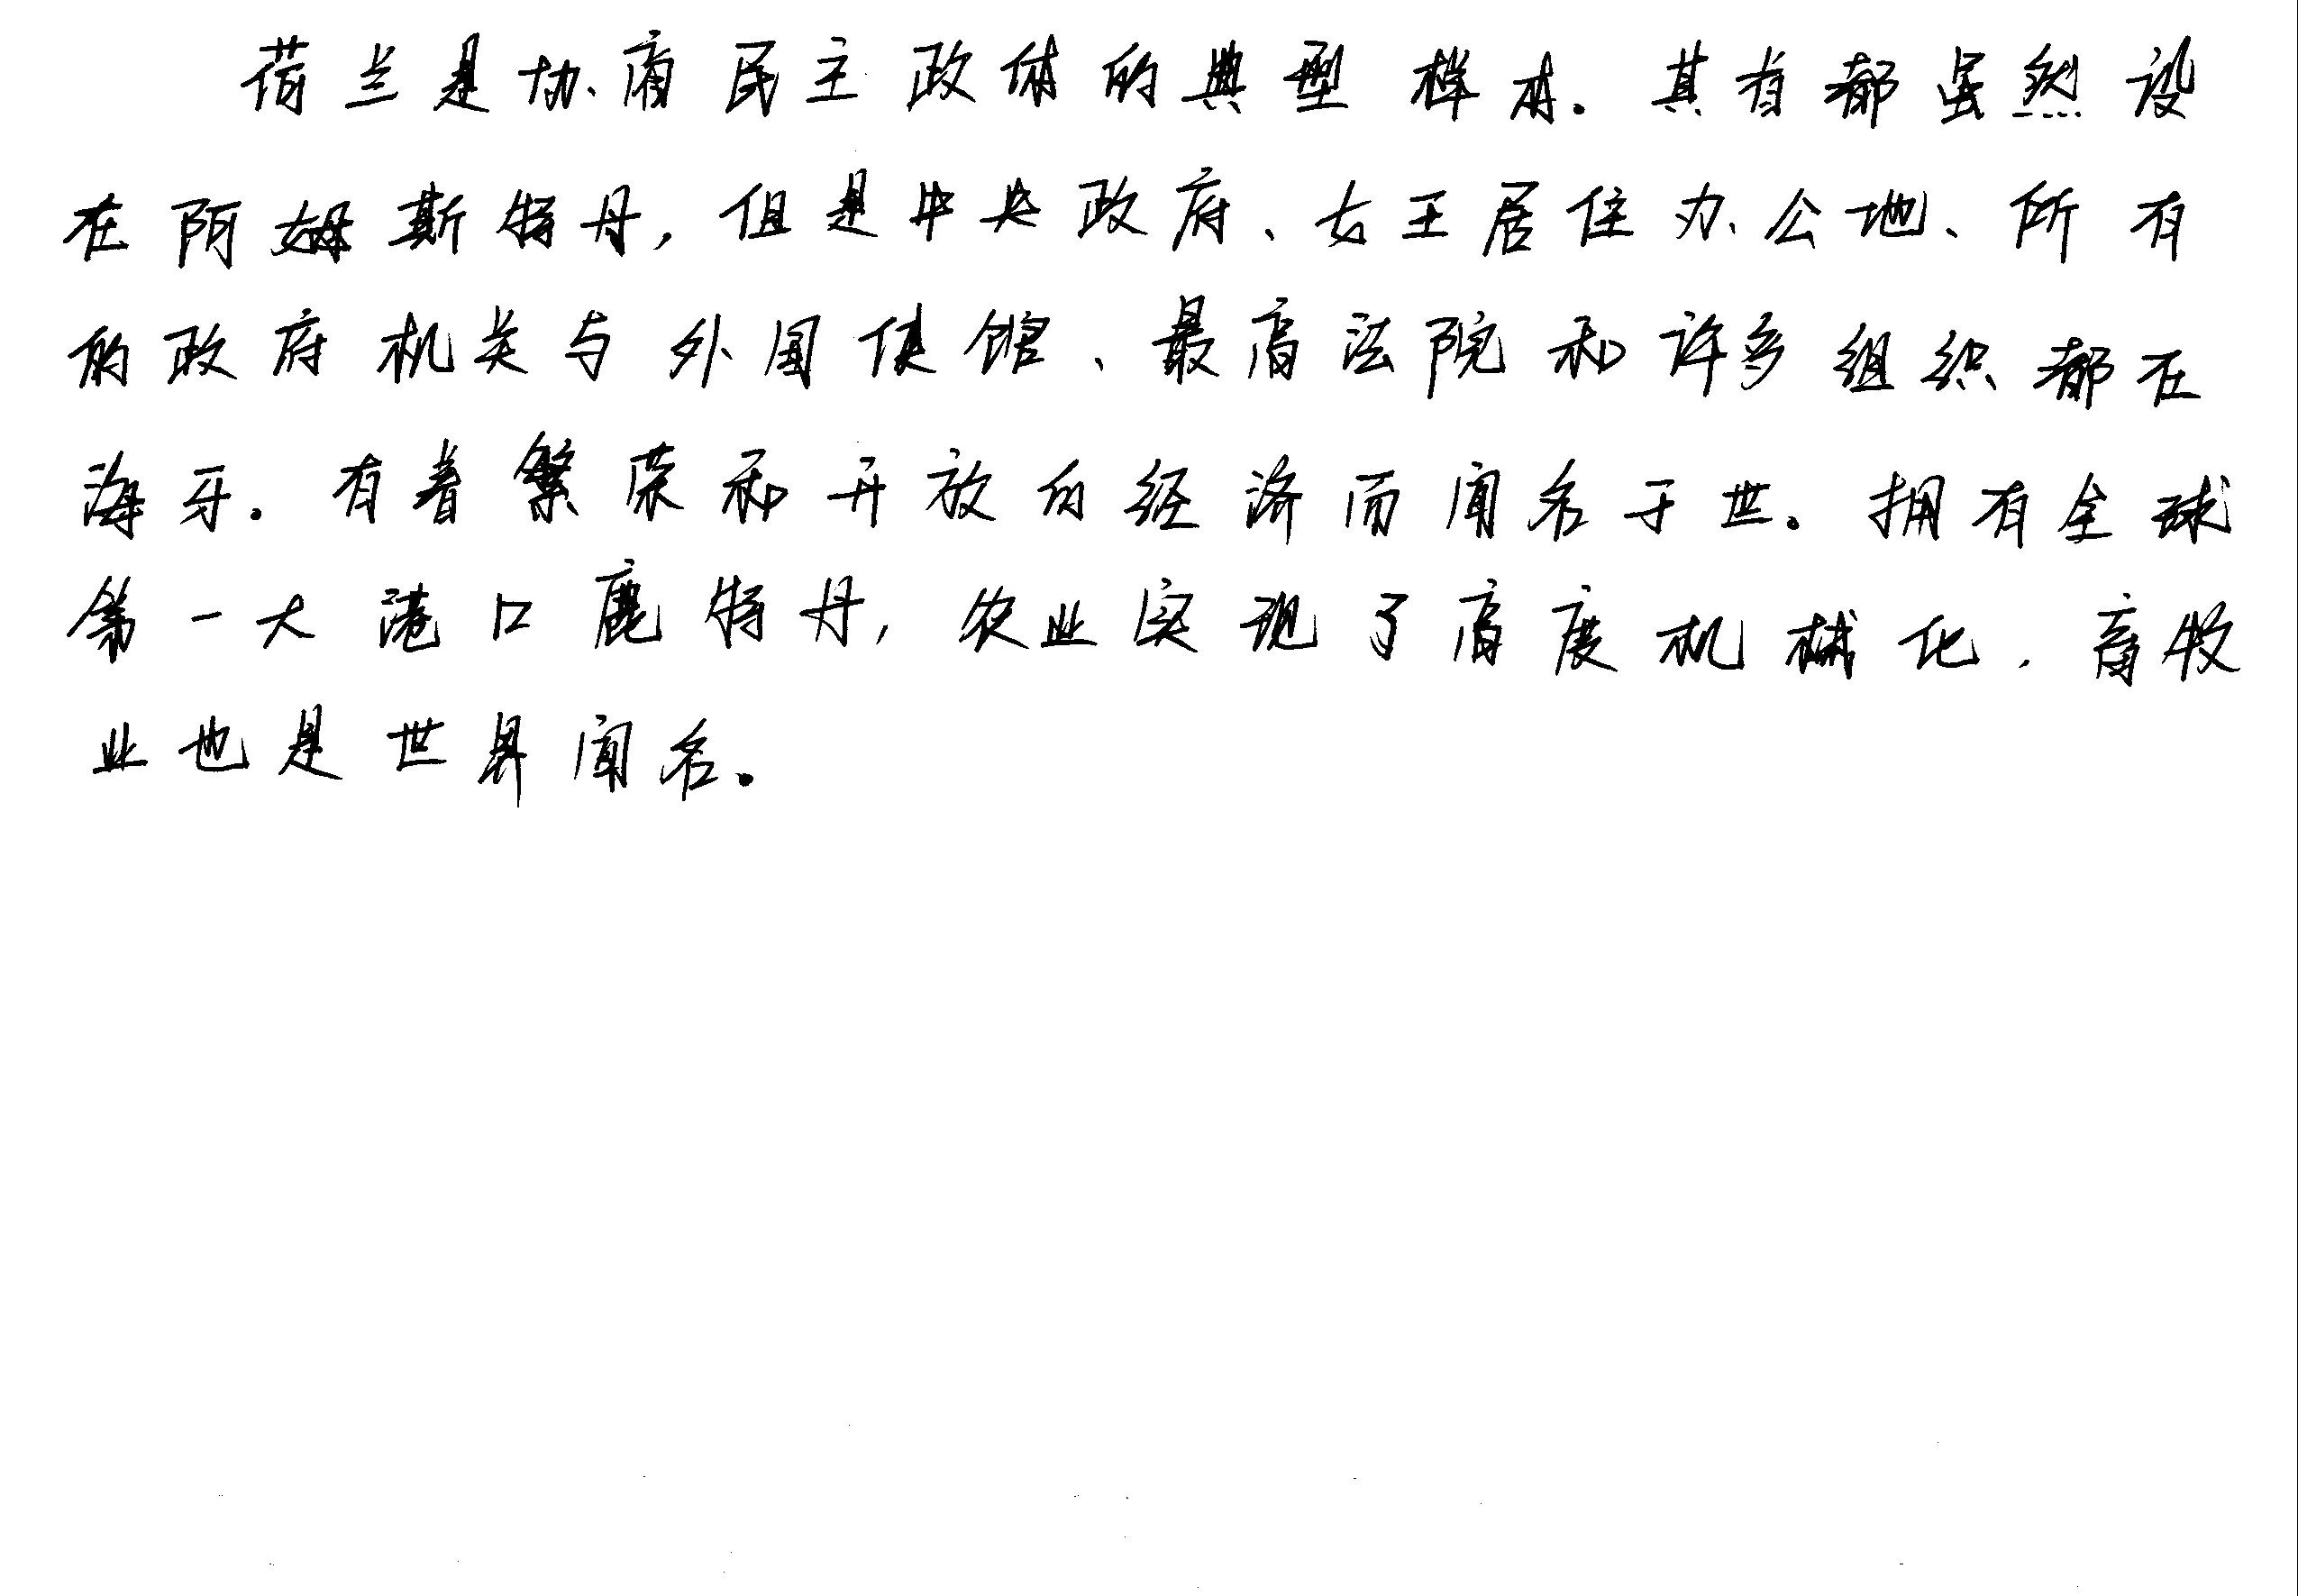 荷兰是协商民主政体的典型样本。其首都虽然设
在阿姆斯特丹，但是中央政府、女王居住办公地、所有
的政府机关与外国使馆、最高法院和许多组织都在
海牙。有着繁荣和开放的经济而闻名于世。拥有全球
第一大港口鹿特丹，农业实现了高度机械化，畜牧
业也是世界闻名。